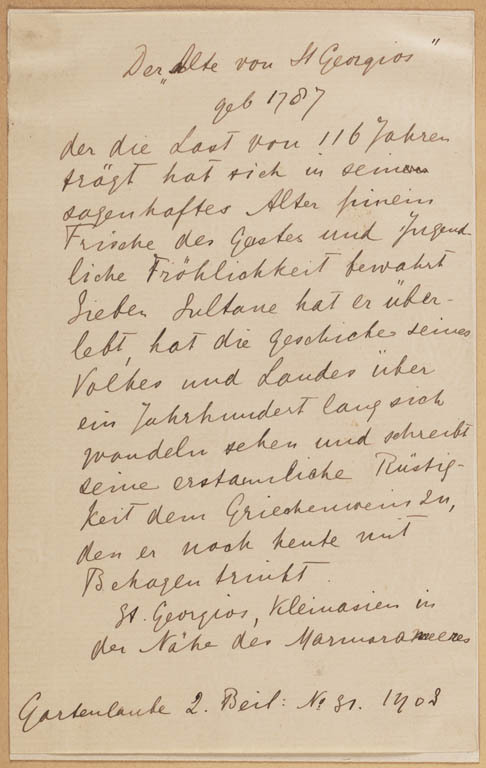 Der „Alte von St Georgios"
geb 1787
der die Last von 116 Jahren
trägt hat sich in seinem
sagenhaftes Alter hinein
Frische des Geistes und Jugend-
liche Fröhlichkeit bewahrt
Sieben Sultane hat er über-
lebt, hat die Geschicke seines
Volkes und Landes über
ein Jahrhundert lang sich
wandeln sehen und schreibt
seine erstaunliche Rüstig-
keit dem Griechenwein zu,
den er noch heute mit
Behagen trinkt.
St. Georgios, Kleinasien in
der Nähe des Marmarameeres
Gartenlaube 2. Beil: No 31. 1903